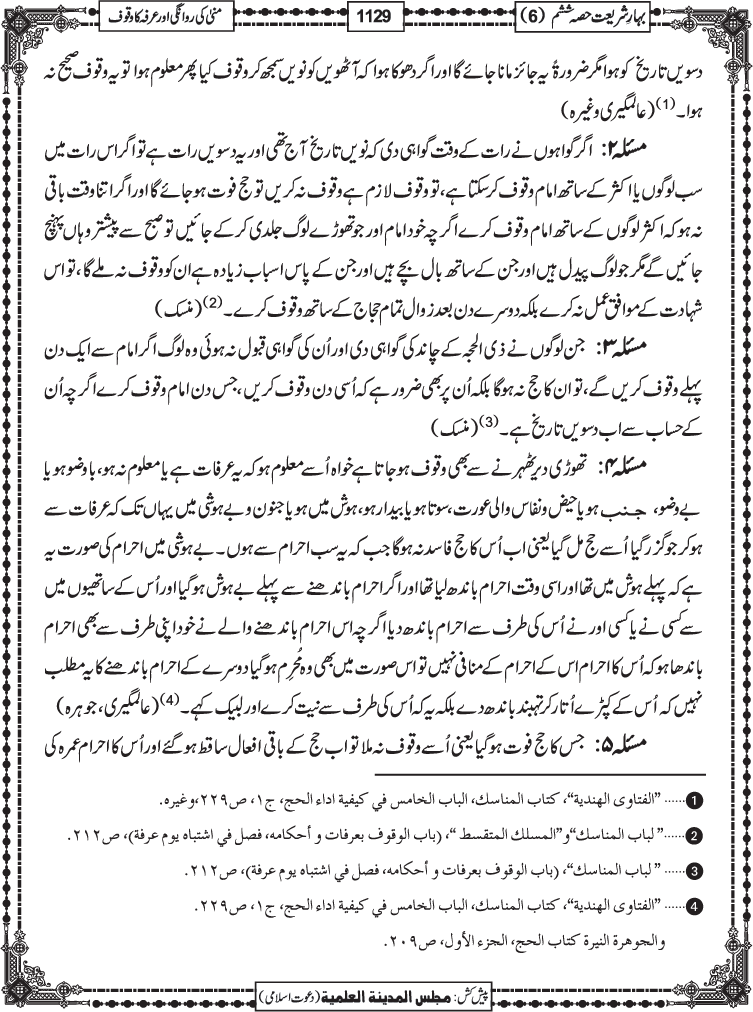 بہارِ شریعت حصہ ششم (6)
1129
منیٰ کی روانگی اور عرفہ کا وقوف
دسویں تاریخ کو ہوا مگر ضرورۃً یہ جائز مانا جائے گا اور اگر دھوکا ہوا کہ آٹھویں کو نویں سمجھ کر وقوف کیا پھر معلوم ہوا تو یہ وقوف صحیح نہ
ہوا۔ (1) (عالمگیری وغیرہ)
مسئلہ ۲: اگر گواہوں نے رات کے وقت گواہی دی کہ نویں تاریخ آج تھی اور یہ دسویں رات ہے تو اگر اس رات میں
سب لوگوں یا اکثر کے ساتھ امام وقوف کرسکتا ہے، تو وقوف لازم ہے وقوف نہ کریں تو حج فوت ہو جائے گا اور اگر اتنا وقت باقی
نہ ہو کہ اکثر لوگوں کے ساتھ امام وقوف کرے اگرچہ خود امام اور جو تھوڑے لوگ جلدی کر کے جائیں تو صبح سے پیشتر وہاں پہنچ
جائیں گے مگر جو لوگ پیدل ہیں اور جن کے ساتھ بال بچے ہیں اور جن کے پاس اسباب زیادہ ہے ان کو وقوف نہ ملے گا، تو اس
شہادت کے موافق عمل نہ کرے بلکہ دوسرے دن بعد زوال تمام حجاج کے ساتھ وقوف کرے۔ (2) (منسک)
مسئلہ ۳: جن لوگوں نے ذی الحجہ کے چاند کی گواہی دی اور اُن کی گواہی قبول نہ ہوئی وہ لوگ اگر امام سے ایک دن
پہلے وقوف کریں گے، تو ان کا حج نہ ہوگا بلکہ اُن پر بھی ضرور ہے کہ اُسی دن وقوف کریں، جس دن امام وقوف کرے اگرچہ اُن
کے حساب سے اب دسویں تاریخ ہے۔ (3) (منسک)
مسئلہ ۴: تھوڑی دیر ٹھہرنے سے بھی وقوف ہو جاتا ہے خواہ اُسے معلوم ہو کہ یہ عرفات ہے یا معلوم نہ ہو، با وضو ہو یا
بے وضو، جنب ہو یا حیض ونفاس والی عورت، سوتا ہو یا بیدار ہو، ہوش میں ہو یا جنون و بے ہوشی میں یہاں تک کہ عرفات سے
ہو کر جو گزر گیا اُسے حج مل گیا یعنی اب اُس کا حج فاسد نہ ہوگا جب کہ یہ سب احرام سے ہوں۔ بے ہوشی میں احرام کی صورت یہ
ہے کہ پہلے ہوش میں تھا اور اسی وقت احرام باندھ لیا تھا اور اگر احرام باندھنے سے پہلے بے ہوش ہو گیا اور اُس کے ساتھیوں میں
سے کسی نے یا کسی اور نے اُس کی طرف سے احرام باندھ دیا اگرچہ اس احرام باندھنے والے نے خود اپنی طرف سے بھی احرام
باندھا ہو کہ اُس کا احرام اس کے احرام کے منافی نہیں تو اس صورت میں بھی وہ مُحرِم ہو گیا دوسرے کے احرام باندھنے کا یہ مطلب
نہیں کہ اُس کے کپڑے اُتار کر تہبند باندھ دے بلکہ یہ کہ اُس کی طرف سے نیت کرے اور لبیک کہے۔ (4) (عالمگیری، جوہرہ)
مسئلہ ۵: جس کا حج فوت ہو گیا یعنی اُسے وقوف نہ ملا تو اب حج کے باقی افعال ساقط ہو گئے اور اُس کا احرام عمرہ کی
1 ...... "الفتاوی الهندیة"، کتاب المناسك، الباب الخامس في کیفیة اداء الحج، ج۱، ص۲۲۹، وغیره.
2 ...... "لباب المناسك" و"المسلك المتقسط"، (باب الوقوف بعرفات و أحکامه، فصل في اشتباه یوم عرفة)، ص۲۱۲.
3 ...... "لباب المناسك"، (باب الوقوف بعرفات و أحکامه، فصل في اشتباه یوم عرفة)، ص۲۱۲.
4 ...... "الفتاوی الهندیة"، کتاب المناسك، الباب الخامس في کیفیة اداء الحج، ج۱، ص۲۲۹.
والجوهرة النیرة کتاب الحج، الجزء الأول، ص۲۰۹.
پیش کش: مجلس المدینة العلمیة (دعوتِ اسلامی)